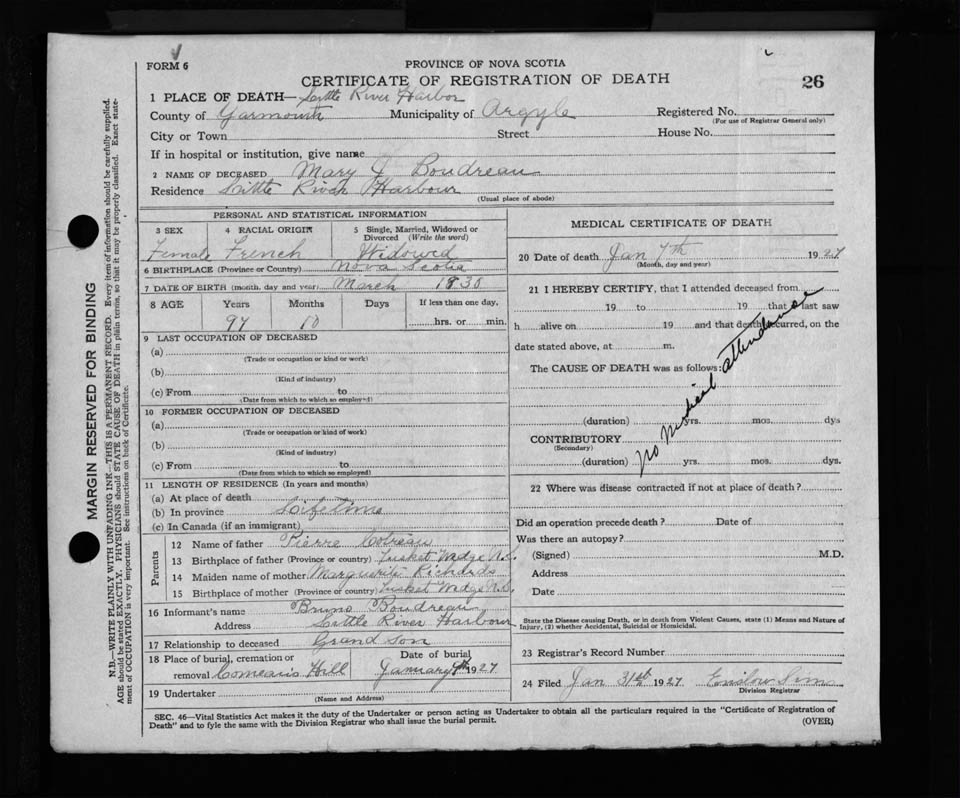 FORM 6
PROVINCE OF NOVA SCOTIA
CERTIFICATE OF REGISTRATION OF DEATH
26
1 PLACE OF DEATH— Little River Harbor
County of Yarmouth Municipality of Argyle Registered No.
(For use of Registrar General only)
City or Town Street House No.
If in hospital or institution, give name
2 NAME OF DECEASED Mary J Boudreau
Residence Little River Harbour
(Usual place of abode)
PERSONAL AND STATISTICAL INFORMATION
3 SEX 4 RACIAL ORIGIN 5 Single, Married, Widowed or Divorced (Write the word)
Female French Widowed
6 BIRTHPLACE (Province or Country) Nova Scotia
7 DATE OF BIRTH (month, day and year) March 1830
8 AGE Years Months Days If less than one day,
97 10 hrs. or min.
9 LAST OCCUPATION OF DECEASED
(a)
(Trade or occupation or kind or work)
(b)
(Kind of industry)
(c) From to
(Date from which to which so employed)
10 FORMER OCCUPATION OF DECEASED
(a)
(Trade or occupation or kind of work)
(b)
(Kind of industry)
(c) From to
(Date from which to which so employed)
11 LENGTH OF RESIDENCE (In years and months)
(a) At place of death
(b) In province Lifetime
(c) In Canada (if an immigrant)
Parents
12 Name of father Pierre
13 Birthplace of father (Province or country) Tusket Wedge N.S.
14 Maiden name of mother Marguerite Richards
15 Birthplace of mother (Province or country) Tusket Wedge N.S.
16 Informant's name Bruno Boudreau
Address Little River Harbour
17 Relationship to deceased Grand Son
18 Place of burial, cremation or Date of burial
removal Comeau's Hill January 9th 1927
19 Undertaker
(Name and Address)
MEDICAL CERTIFICATE OF DEATH
20 Date of death Jan 7th 1927
(Month, day and year)
21 I HEREBY CERTIFY, that I attended deceased from
19 to 19 that I last saw
h alive on 19 and that death occurred, on the
date stated above, at m.
The CAUSE OF DEATH was as follows:
no medical attendance
(duration) yrs. mos. dys
CONTRIBUTORY
(Secondary)
(duration) yrs. mos. dys.
22 Where was disease contracted if not at place of death?
Did an operation precede death? Date of
Was there an autopsy?
(Signed) M.D.
Address
Date
State the Disease causing Death, or in death from Violent Causes, state (1) Means and Nature of
Injury, (2) whether Accidental, Suicidal or Homicidal.
23 Registrar's Record Number
24 Filed Jan 31st 1927 Enslow Sims
Division Registrar
SEC. 46—Vital Statistics Act makes it the duty of the Undertaker or person acting as Undertaker to obtain all the particulars required in the "Certificate of Registration of
Death" and to fyle the same with the Division Registrar who shall issue the burial permit.
(OVER)
MARGIN RESERVED FOR BINDING
N.B.—WRITE PLAINLY WITH UNFADING INK—THIS IS A PERMANENT RECORD. Every item of information should be carefully supplied.
AGE should be stated EXACTLY. PHYSICIANS should STATE CAUSE OF DEATH in plain terms, so that it may be properly classified. Exact state-
ment of OCCUPATION is very important. See instructions on back of Certificate.